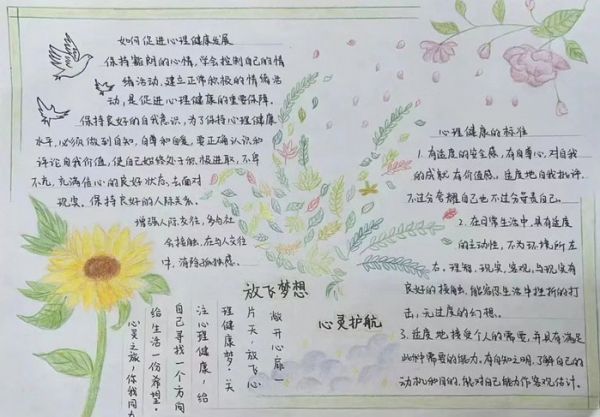 如何促进心理健康发展
保持截朗的心情,学会控制自己的情
绪活动,建立正常积极的情绪活
动,是促进心理健康的重要保障。
保持良好的自我意识,为了保持心理健康
水平,必须做到自知,自尊和自爱,要正确认识和
评论自我价值,使自己始终处于积极进取,不卑
不亢,充满信心的良好状态,去面对
现实,保持良好的人际关系,
增强人际交往,多与社
会接触,在与人交往
中,消除孤独感。
心理健康的标准
1.有适度的安全感,有自尊心,对自我
的成就有价值感,适度地自我批评,
不过分夸耀自己也不过分苛责自己。
2.在日常生活中,具有适度
的主动性,不为环境所左
右,理智,现实,客观,与现实有
良好的接触,能容忍生活中挫折的打
击,无过度的幻想。
3.适度地接受个人的需要,并具有满足
此种需要的能力,有自知之明,了解自己的
动机和目的,能对自己能力作客观估计。
放飞梦想
心灵护航
敞开心扉一
片天,放飞心
理健康梦:关
注心理健康,给
自己寻找一个方向
给生活一份希望。
心灵之旅,你我同力